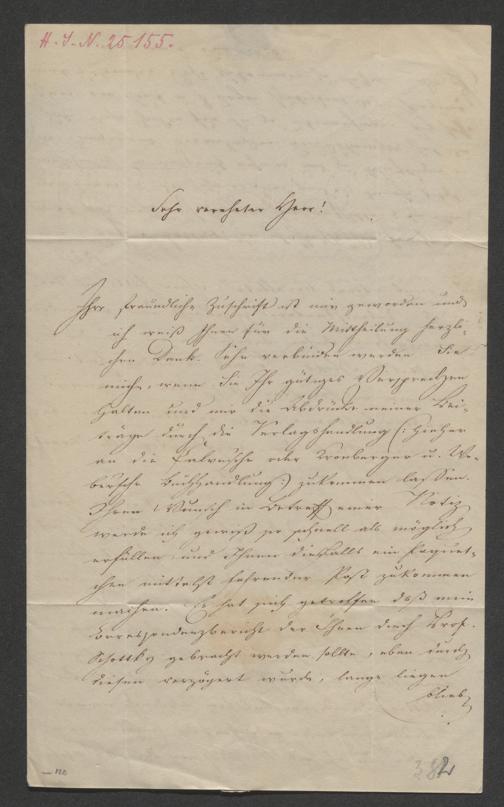 H. I. N. 25155.
Sehr verehrter Herr!
Ihre freundliche Zuschrift ist mir geworden und
ich weiß Ihnen für die Mittheilung herzli-
chen Dank. Sehr verbinden werden Sie
mich, wenn Sie Ihr gütiges Versprechen
halten und mir die Abdrücke meiner Bei-
träge durch die Verlagshandlung (: hieher
an die Calve'sche oder Kronberger u. We-
ber'sche Buchhandlung:) zukommen lassen.
Ihren Wunsch in Betreff einer Notiz
werde ich gewiß so schnell als möglich
erfüllen und Ihnen dießfalls ein Paquet-
chen mittelst fahrender Post zukommen
machen. Es hat sich getroffen daß mein
Correspondenzbericht der Ihnen durch Prof.
Schottky gebracht werden sollte, eben durch
diesen verzögert wurde, lange liegen
blieb
382